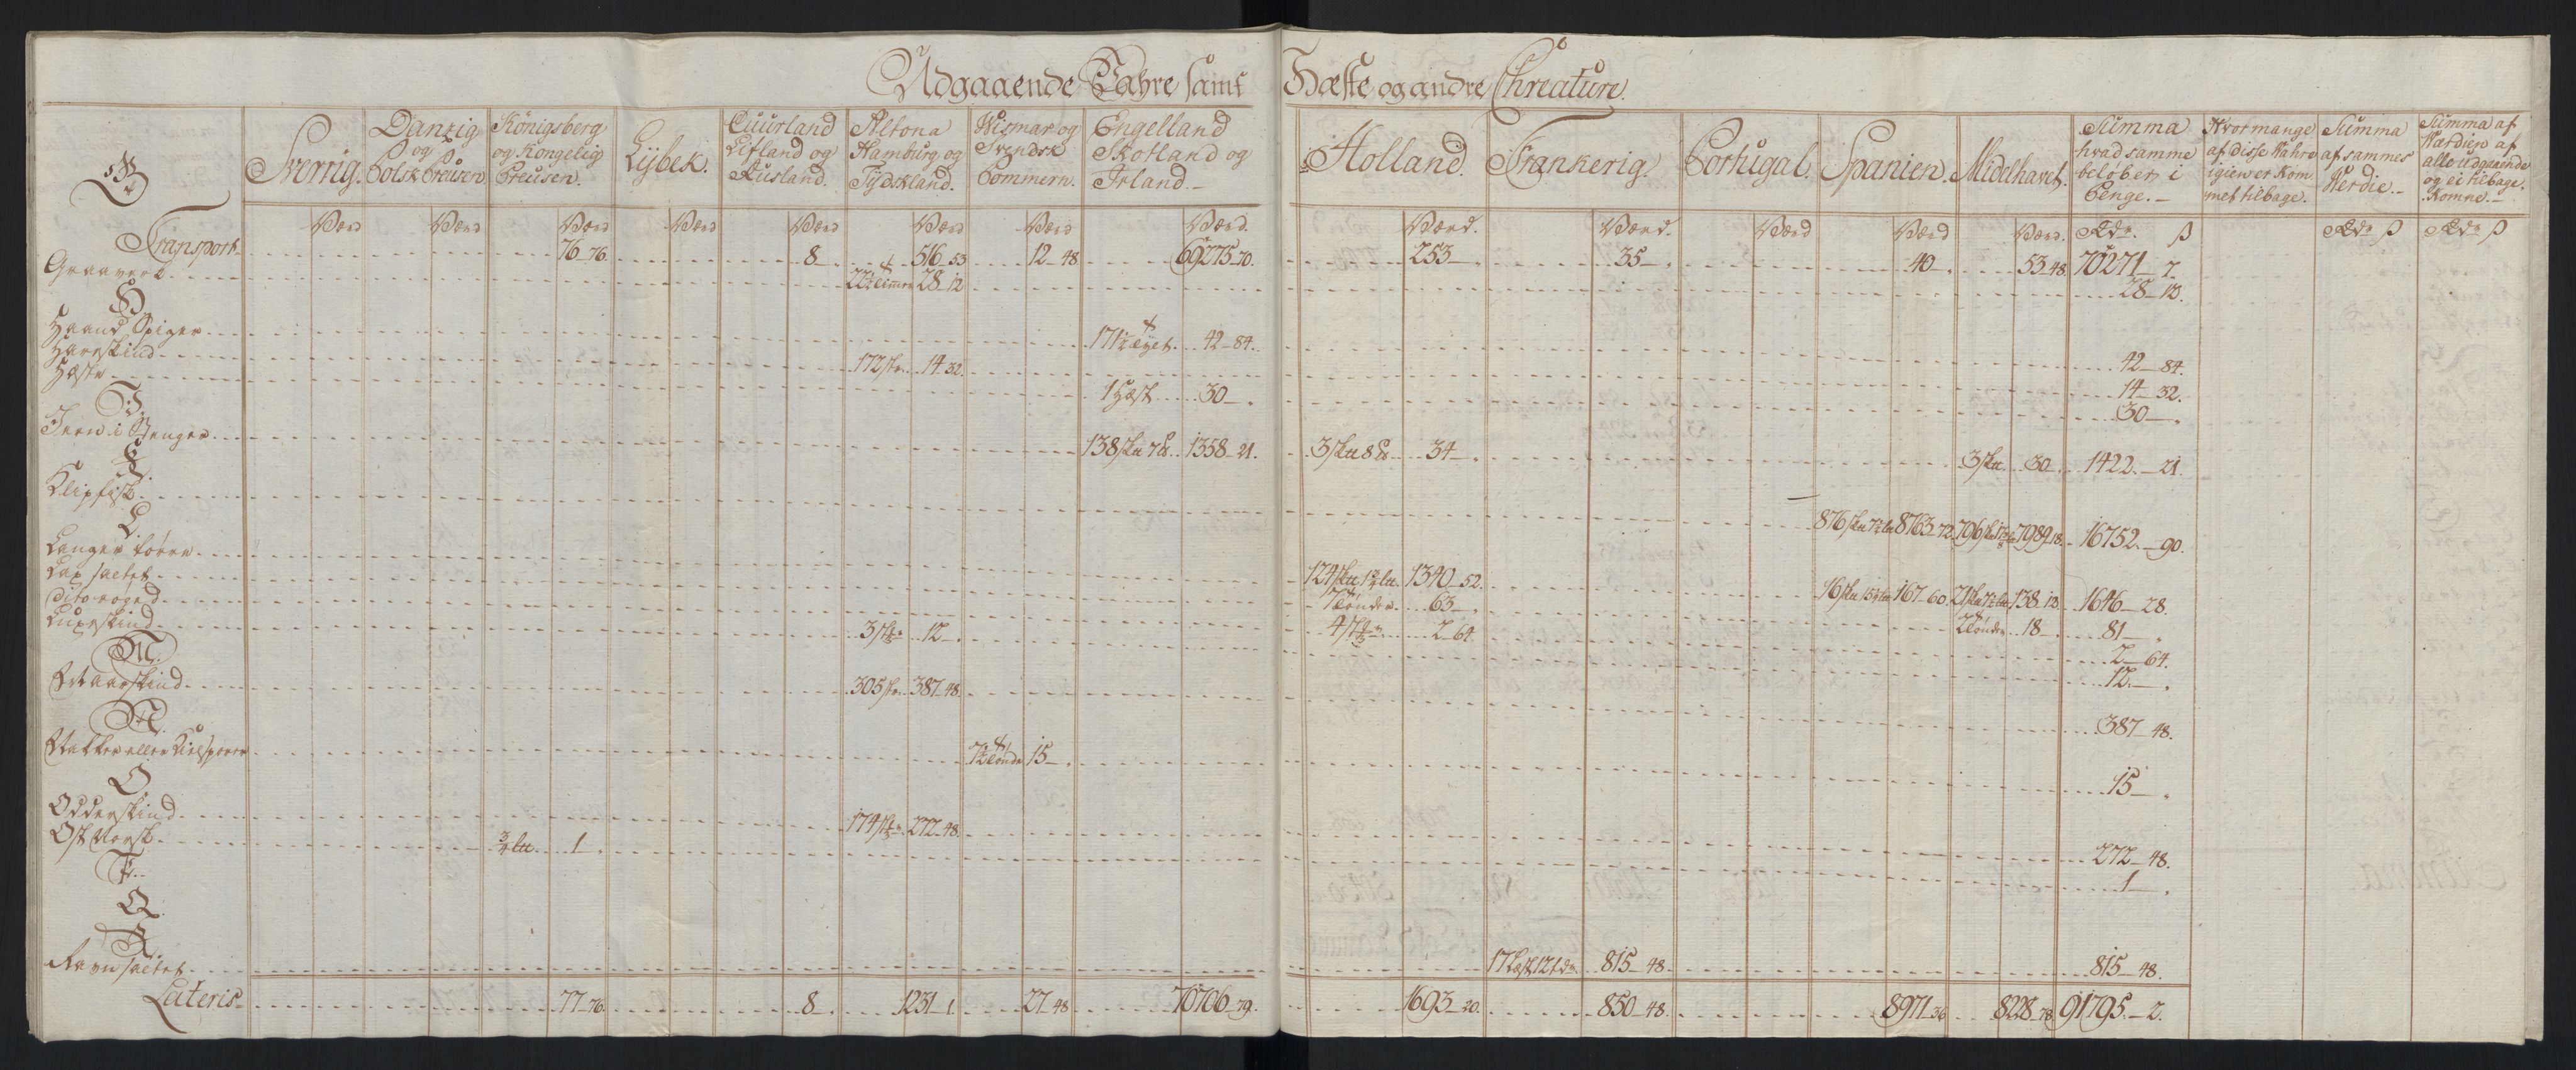 Udgaaende Wahre samt Hæste og andre Chreature.
Sverrig. Danzig og Polsk Preusen. Königsberg og Kongelig Preusen. Lybek. Cuurland Lifland og Rusland. Altona Hamburg og Tydskland. Wismar og Svendsk Pommern. Engelland Skotland og Irland.
Holland. Frankerig. Portugal. Spanien. Midelhavet. Summa hvad samme beløber i Penge. Hvor mange af disse Wahre igien er kommet tilbage. Summa af sammes Werdie. Summa af Wærdien af alle udgaaende og ei tilbage komne.
Værd Værd Værd Værd Værd Værd Værd Værd. Værd. Værd. Værd Værd Værd. Rdr. ß Rdr ß Rdr ß
Transport 76 76. 8 516 53 12 48 69275 70. 253 35 40 53 48. 70271 7.
Graaverk 22½ Timmer 28 12 28 12.
H
Haand Spiger 42 84. 42 84.
Hareskind 172 st. 14 32. 14 32.
Hæste 1 Hæst 30 30
I.
Jern i Stenger 138 sku 7 lt. 1358 21. 3 sku 34 3 sku 30 1422. 21.
K.
Klipfisk 8763 72. 7989 18. 16752. 90.
L.
Langer tørre 124 sku 1340 52. 16 sku 167 60. 21 sku 138 12. 1646 28.
Lax saltet 7 Tønder 63 2 Tønder 18 81
Dito røged 2 64. 2 64.
Luxeskind 12 12.
M.
Maarskind 305 st. 387 48. 387 48.
N.
Nakker eller Kielsporer 15 15
O
Odderskind 272 48. 272 48.
Ost Norsk ¾ lt. 1 1
P.
Q
R.
Ravn saltet 815 48. 815 48.
Lateris 77 76. 8 1231 1. 27 48 70706 79. 1693 20. 850 48. 8971 36 8228 78 91795. 2.